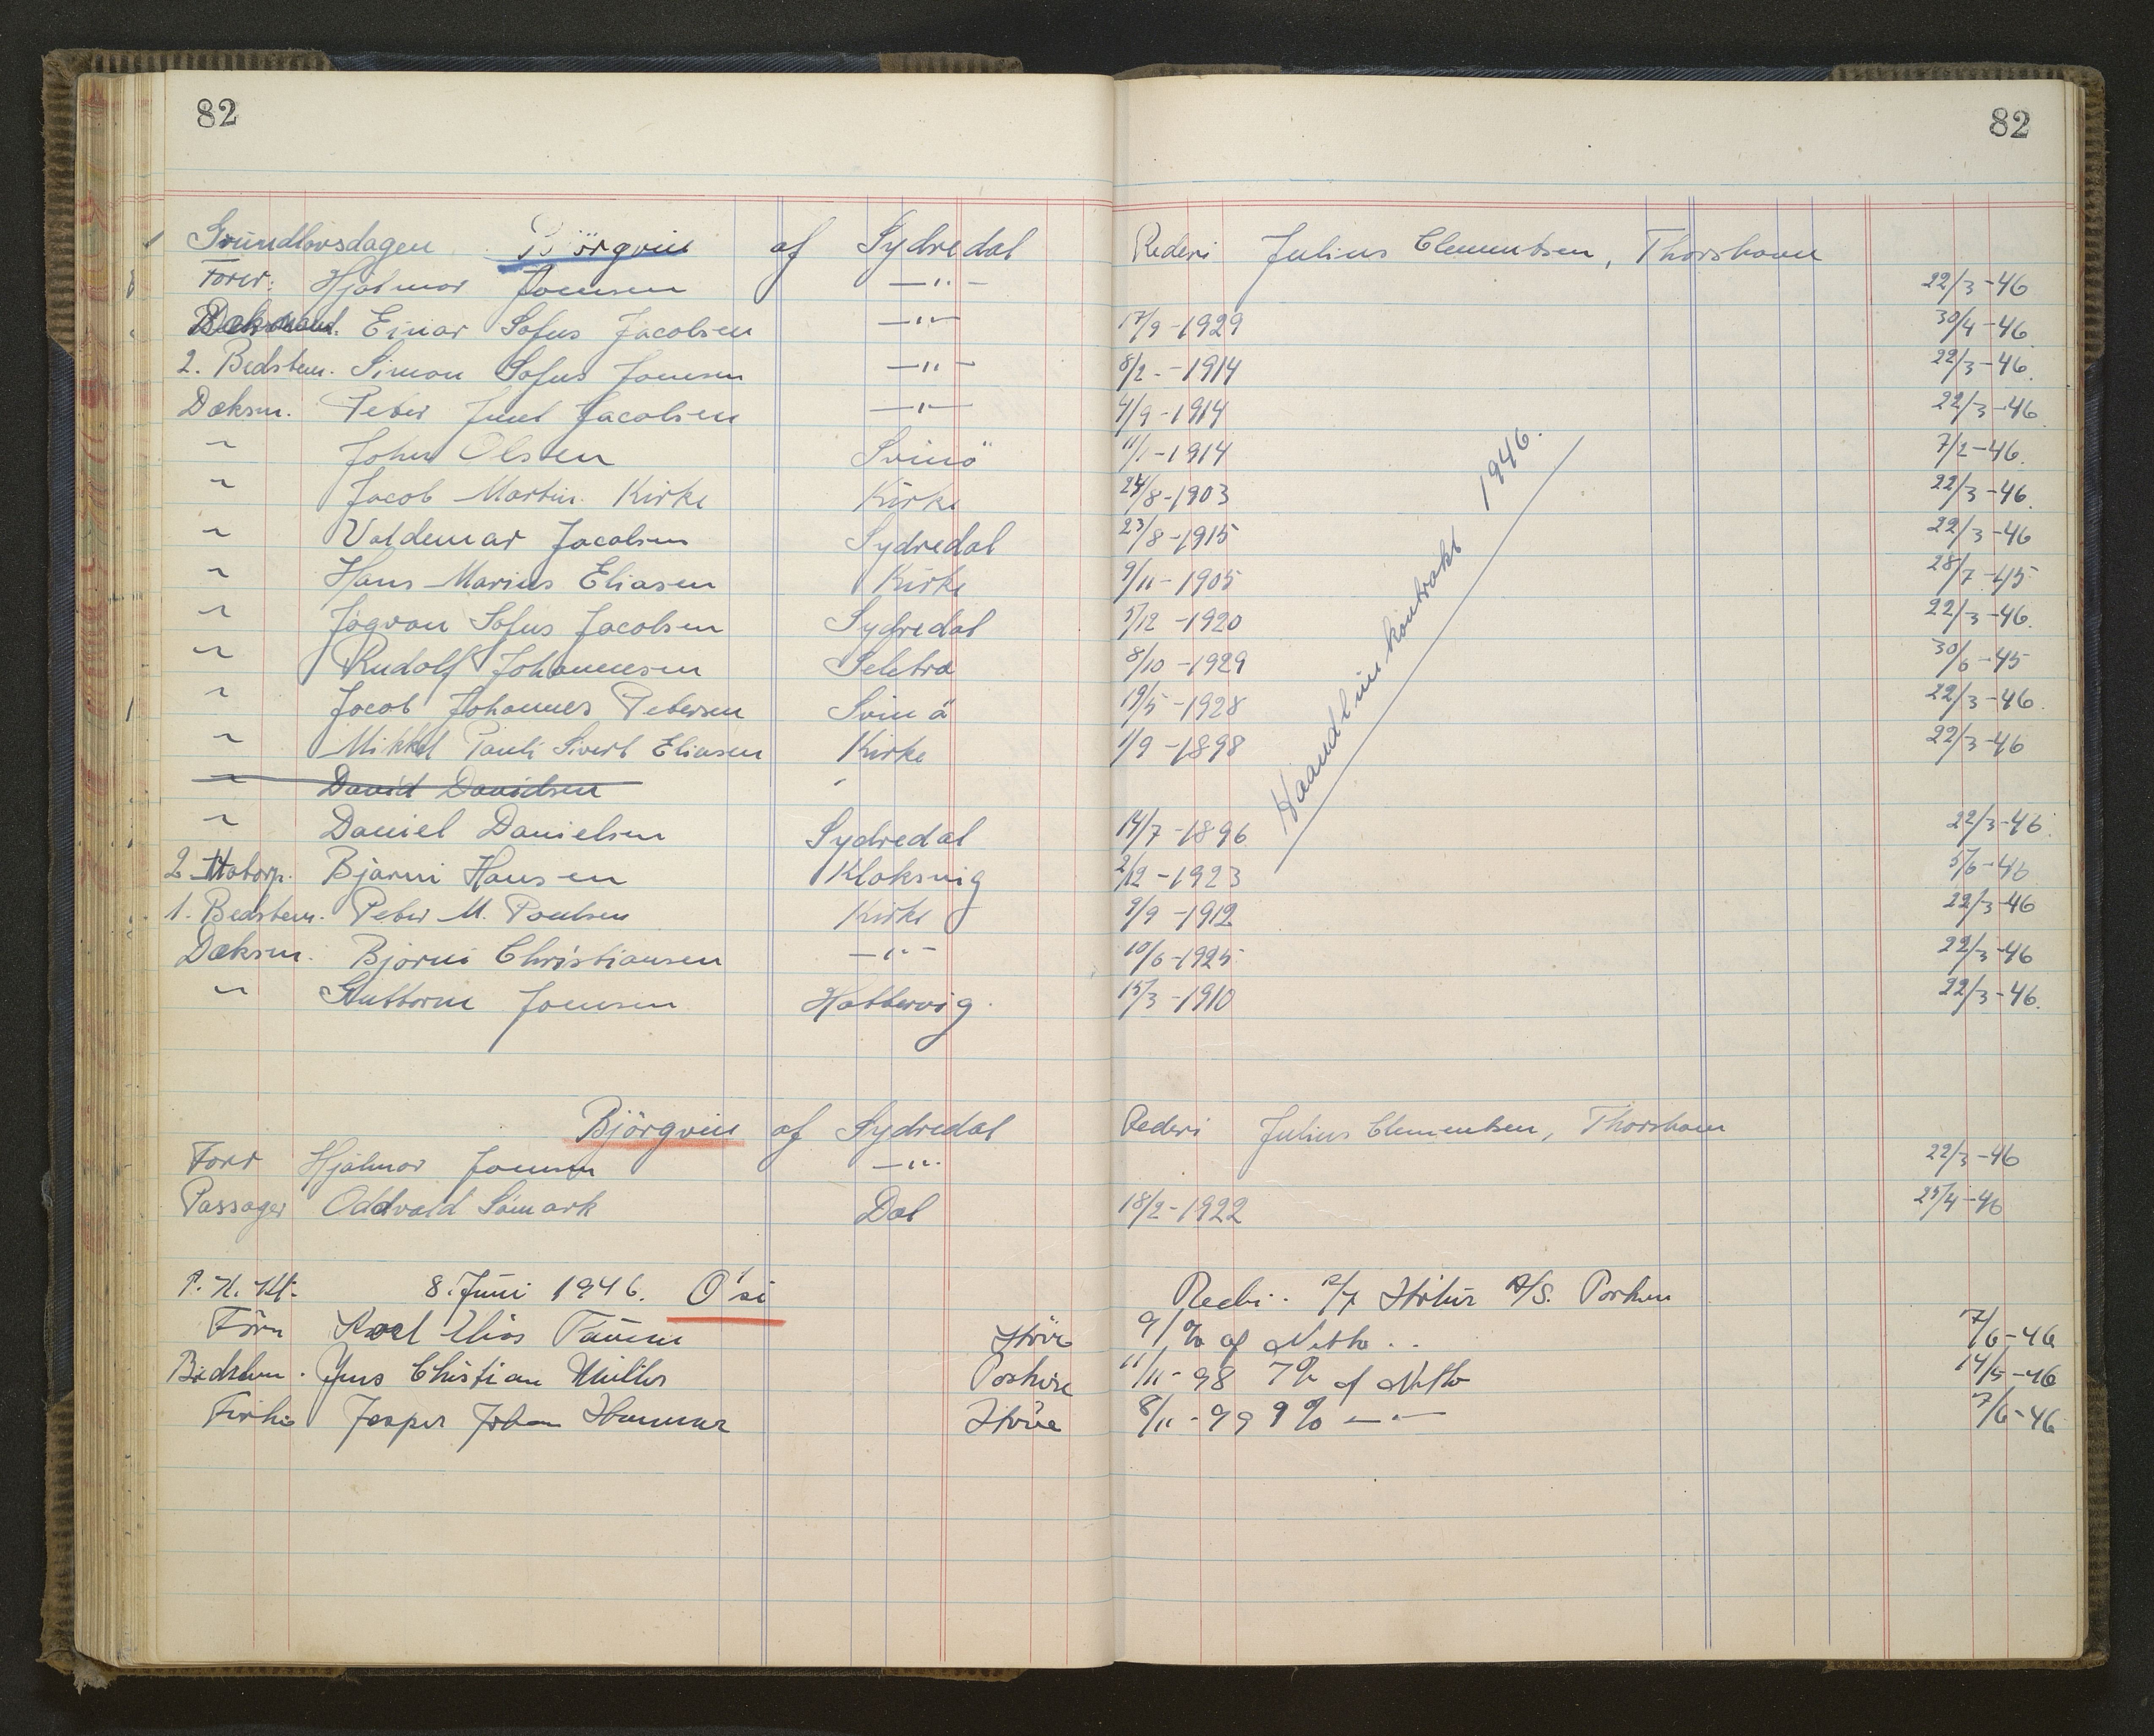 82 82
Grundlovsdagen Björgvin af Sydredal Rederi Julius Clementsen, Thorshavn
Förer: Hjalmar Joensen —"— 22/3-46
Einar Sofus Jacobsen —"— 17/9-1929 30/4-46
2. Bedstem. Simon Sofus Joensen —"— 8/2-1914 22/3-46.
Dæksm. Peter Juul Jacobsen —"— 4/9-1914 22/3-46.
" John Olsen Svinö 11/1-1914 7/2-46.
" Jacob Martin Kirke Kirke 24/8-1903 22/3-46.
" Valdemar Jacobsen Sydredal 23/8-1915 22/3-46
" Hans Marius Eliasen Kirke 9/11-1905 28/7-45
" Jógvan Sofus Jacobsen Sydredal 5/12-1920 22/3-46.
" Rudolf Johannesen Seletra 8/10-1929 30/6-45
" Jacob Johannes Petersen Svinö 19/5-1928 22/3-46.
" Mikkel Pauli Sivert Eliasen Kirke 1/9-1898 22/3-46
" David Davidsen "
" Daniel Danielsen Sydredal 14/7-1896 22/3-46.
2. Motorp. Bjarni Hansen Klaksvig 2/12-1923 5/6-46
1. Bedstem. Peter M. Poulsen Kirke 9/9-1912 22/3-46
Dæksm. Bjarni Christiansen —"— 10/6-1925 22/3-46
" Guttorm Joensen Hattervig. 15/3-1910 22/3-46.
Haandlinekontrakt 1946.
Björgvin af Sydredal Rederi Julius Clementsen, Thorshavn
Förer Hjalmar Joensen —"— 22/3-46
Passager Oddvald Sámark Dal 18/2-1922 25/4-46
8. Juni 1946. Ósi A/S. Porkeri
Elias 9% af Netto .. 7/6-46
Bedstem. Jens Christian Porkere 11/11-98 7% af Netto 14/5-46
Jesper Johan Hammer 8/11-99 9% —"— 7/6-46